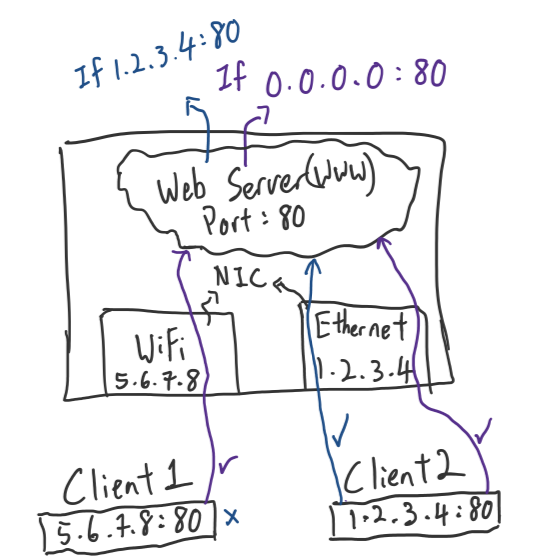 If 1.2.3.4:80
If 0.0.0.0:80
Web Server(WWW)
Port: 80
NIC
WiFi
5.6.7.8
Ethernet
1.2.3.4
Client 1
5.6.7.8:80
x
Client 2
1.2.3.4:80